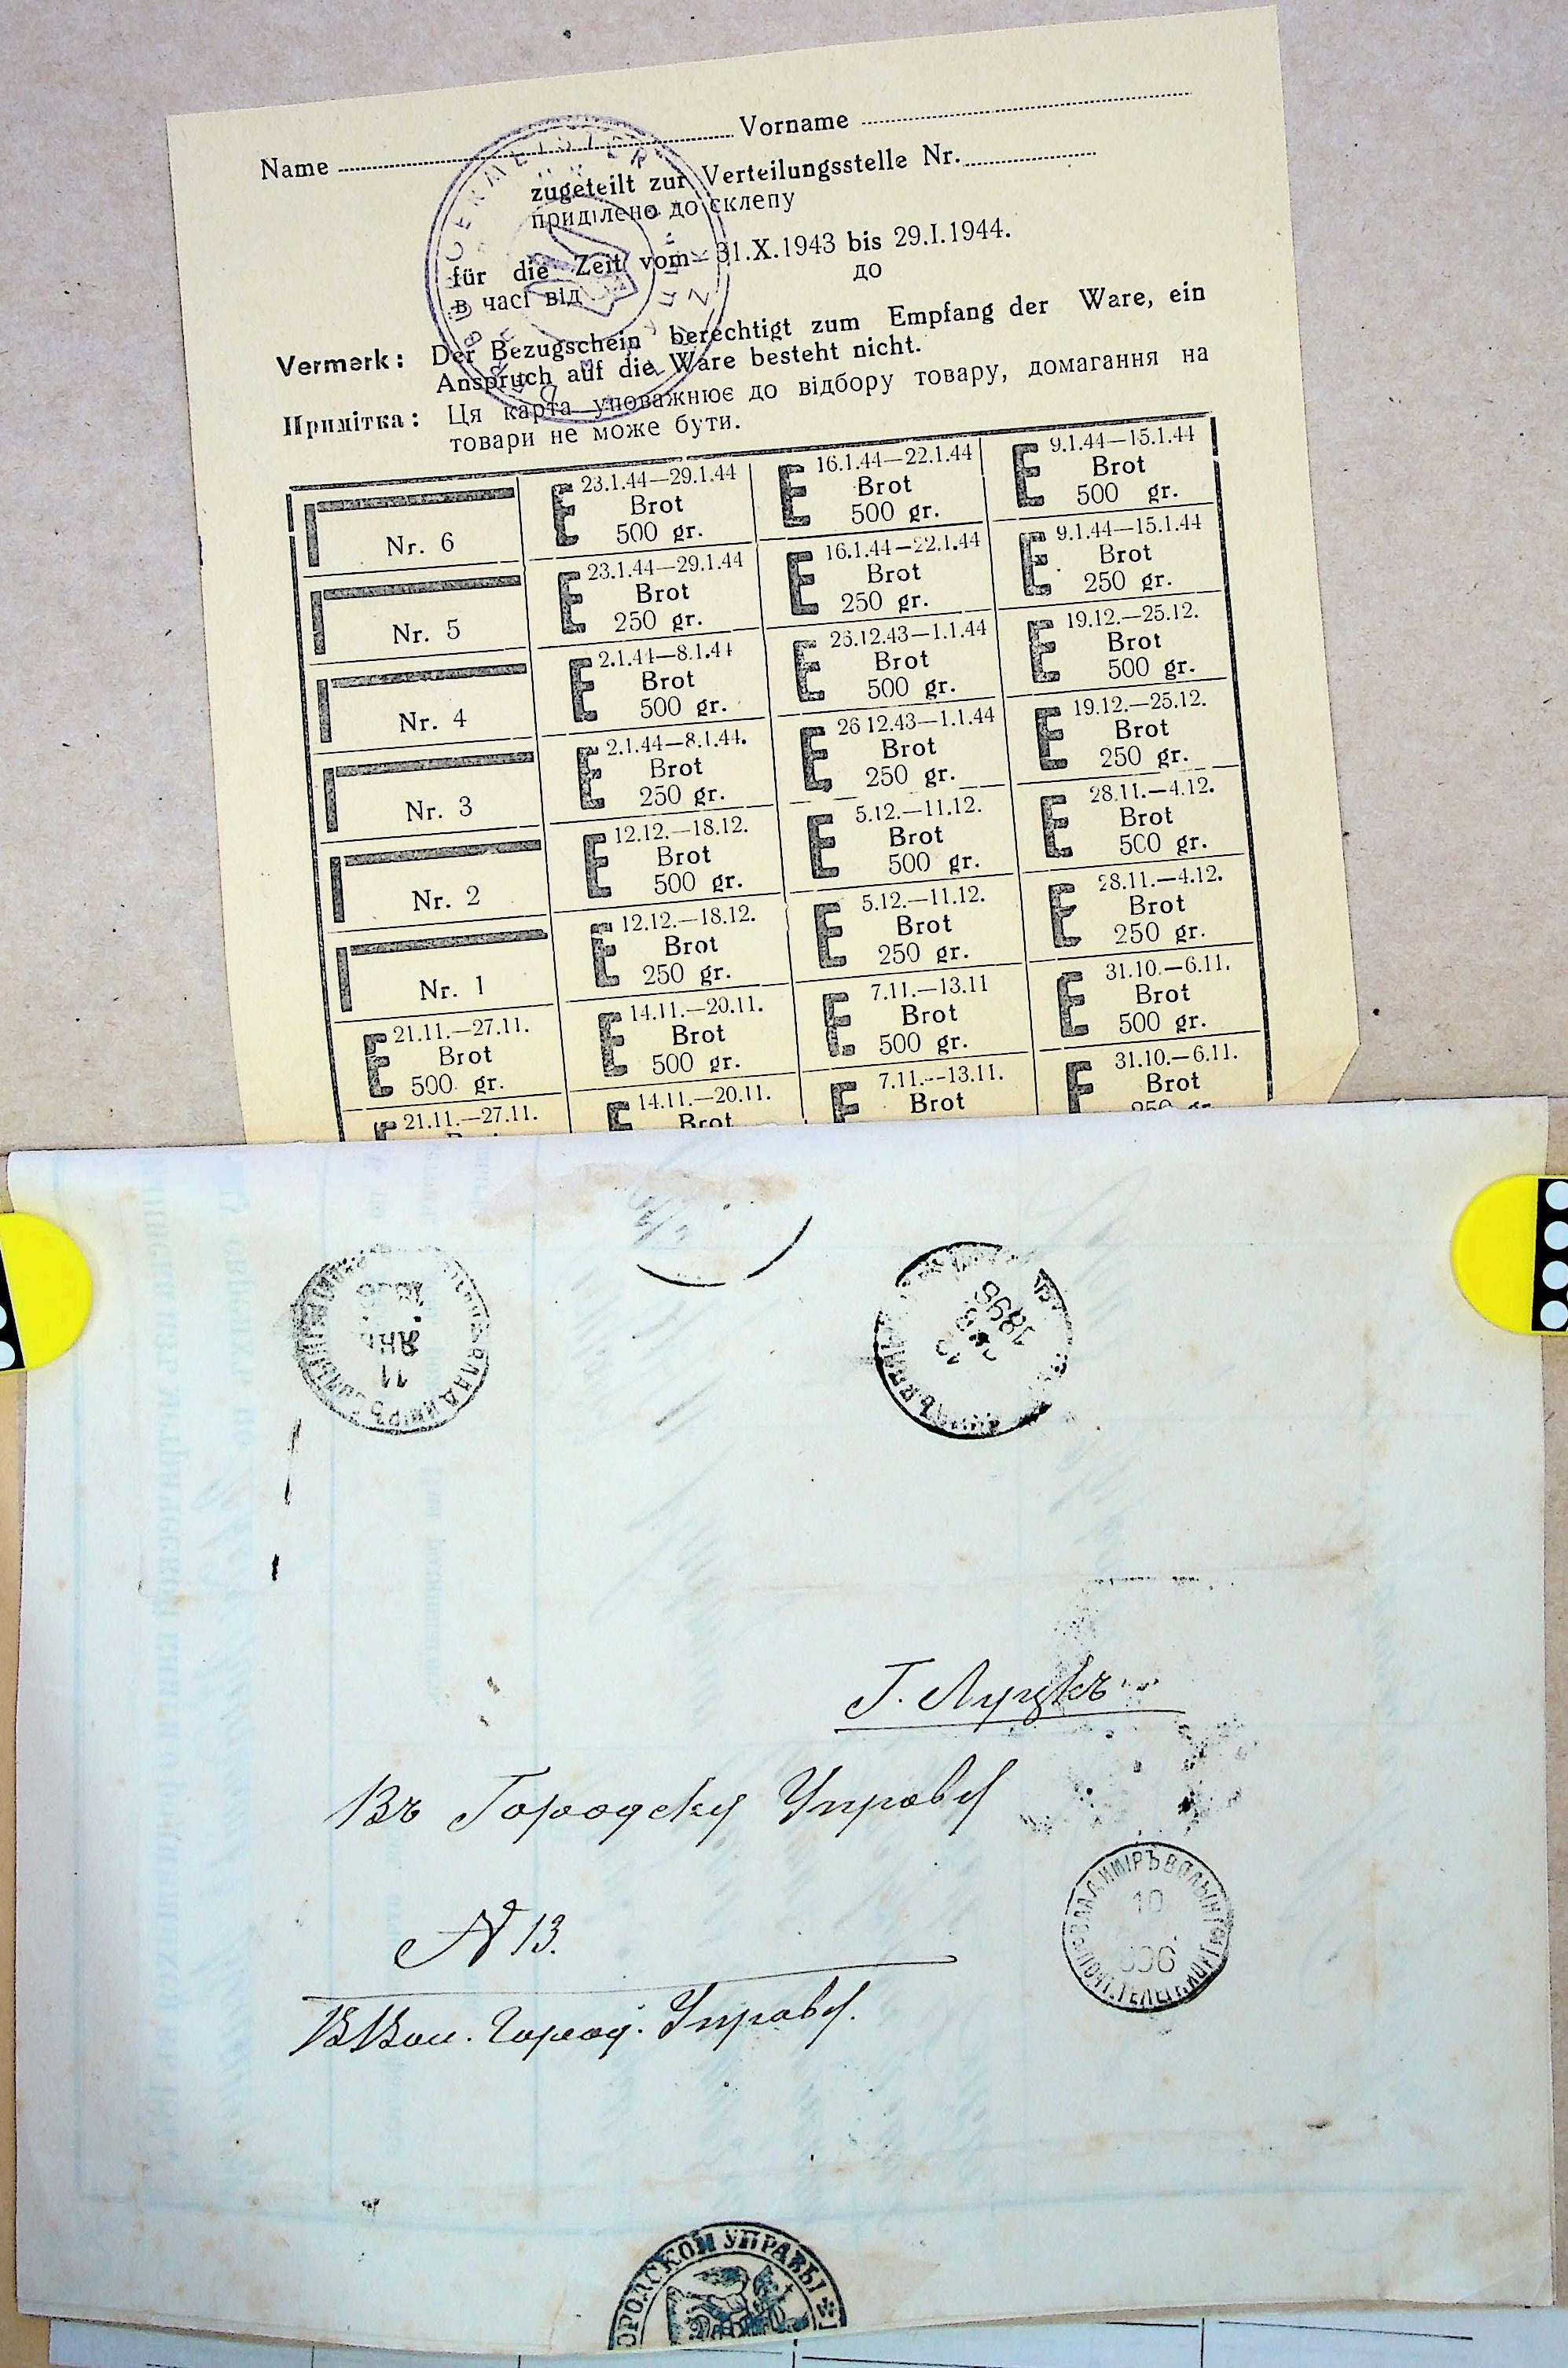 Name ........ Vorname ........
zugeteilt zur Verteilungsstelle Nr. ........
приділено до склепу
für die Zeit vom 31.X.1943 bis 29.I.1944.
в часі від до
Vermerk: Der Bezugschein berechtigt zum Empfang der Ware, ein
Anspruch auf die Ware besteht nicht.
Примітка: Ця карта уповажнює до відбору товару, домагання на
товари не може бути.
Nr. 6 E 23.1.44—29.1.44 Brot 500 gr. E 16.1.44—22.1.44 Brot 500 gr. E 9.1.44—15.1.44 Brot 500 gr.
Nr. 5 E 23.1.44—29.1.44 Brot 250 gr. E 16.1.44—22.1.44 Brot 250 gr. E 9.1.44—15.1.44 Brot 250 gr.
Nr. 4 E 2.1.44—8.1.44 Brot 500 gr. E 26.12.43—1.1.44 Brot 500 gr. E 19.12.—25.12. Brot 500 gr.
Nr. 3 E 2.1.44—8.1.44. Brot 250 gr. E 26 12.43—1.1.44 Brot 250 gr. E 19.12.—25.12. Brot 250 gr.
Nr. 2 E 12.12.—18.12. Brot 500 gr. E 5.12.—11.12. Brot 500 gr. E 28.11.—4.12. Brot 500 gr.
Nr. 1 E 12.12.—18.12. Brot 250 gr. E 5.12.—11.12. Brot 250 gr. E 28.11.—4.12. Brot 250 gr.
E 21.11.—27.11. Brot 500 gr. E 14.11.—20.11. Brot 500 gr. E 7.11.—13.11 Brot 500 gr. E 31.10.—6.11. Brot 500 gr.
21.11.—27.11. E 14.11.—20.11. Brot E 7.11.—13.11. Brot E 31.10.—6.11. Brot 250 gr.
11 ЯНВ
1896
Г. Луцкъ
Въ Городскую Управу
№ 13.
ВВол. Город. Управы.
ВЛАДИМІРЪ ВОЛЫН.
10
ПОЧТ. ТЕЛЕГР.
ОРОДСКОЙ УПРАВЫ